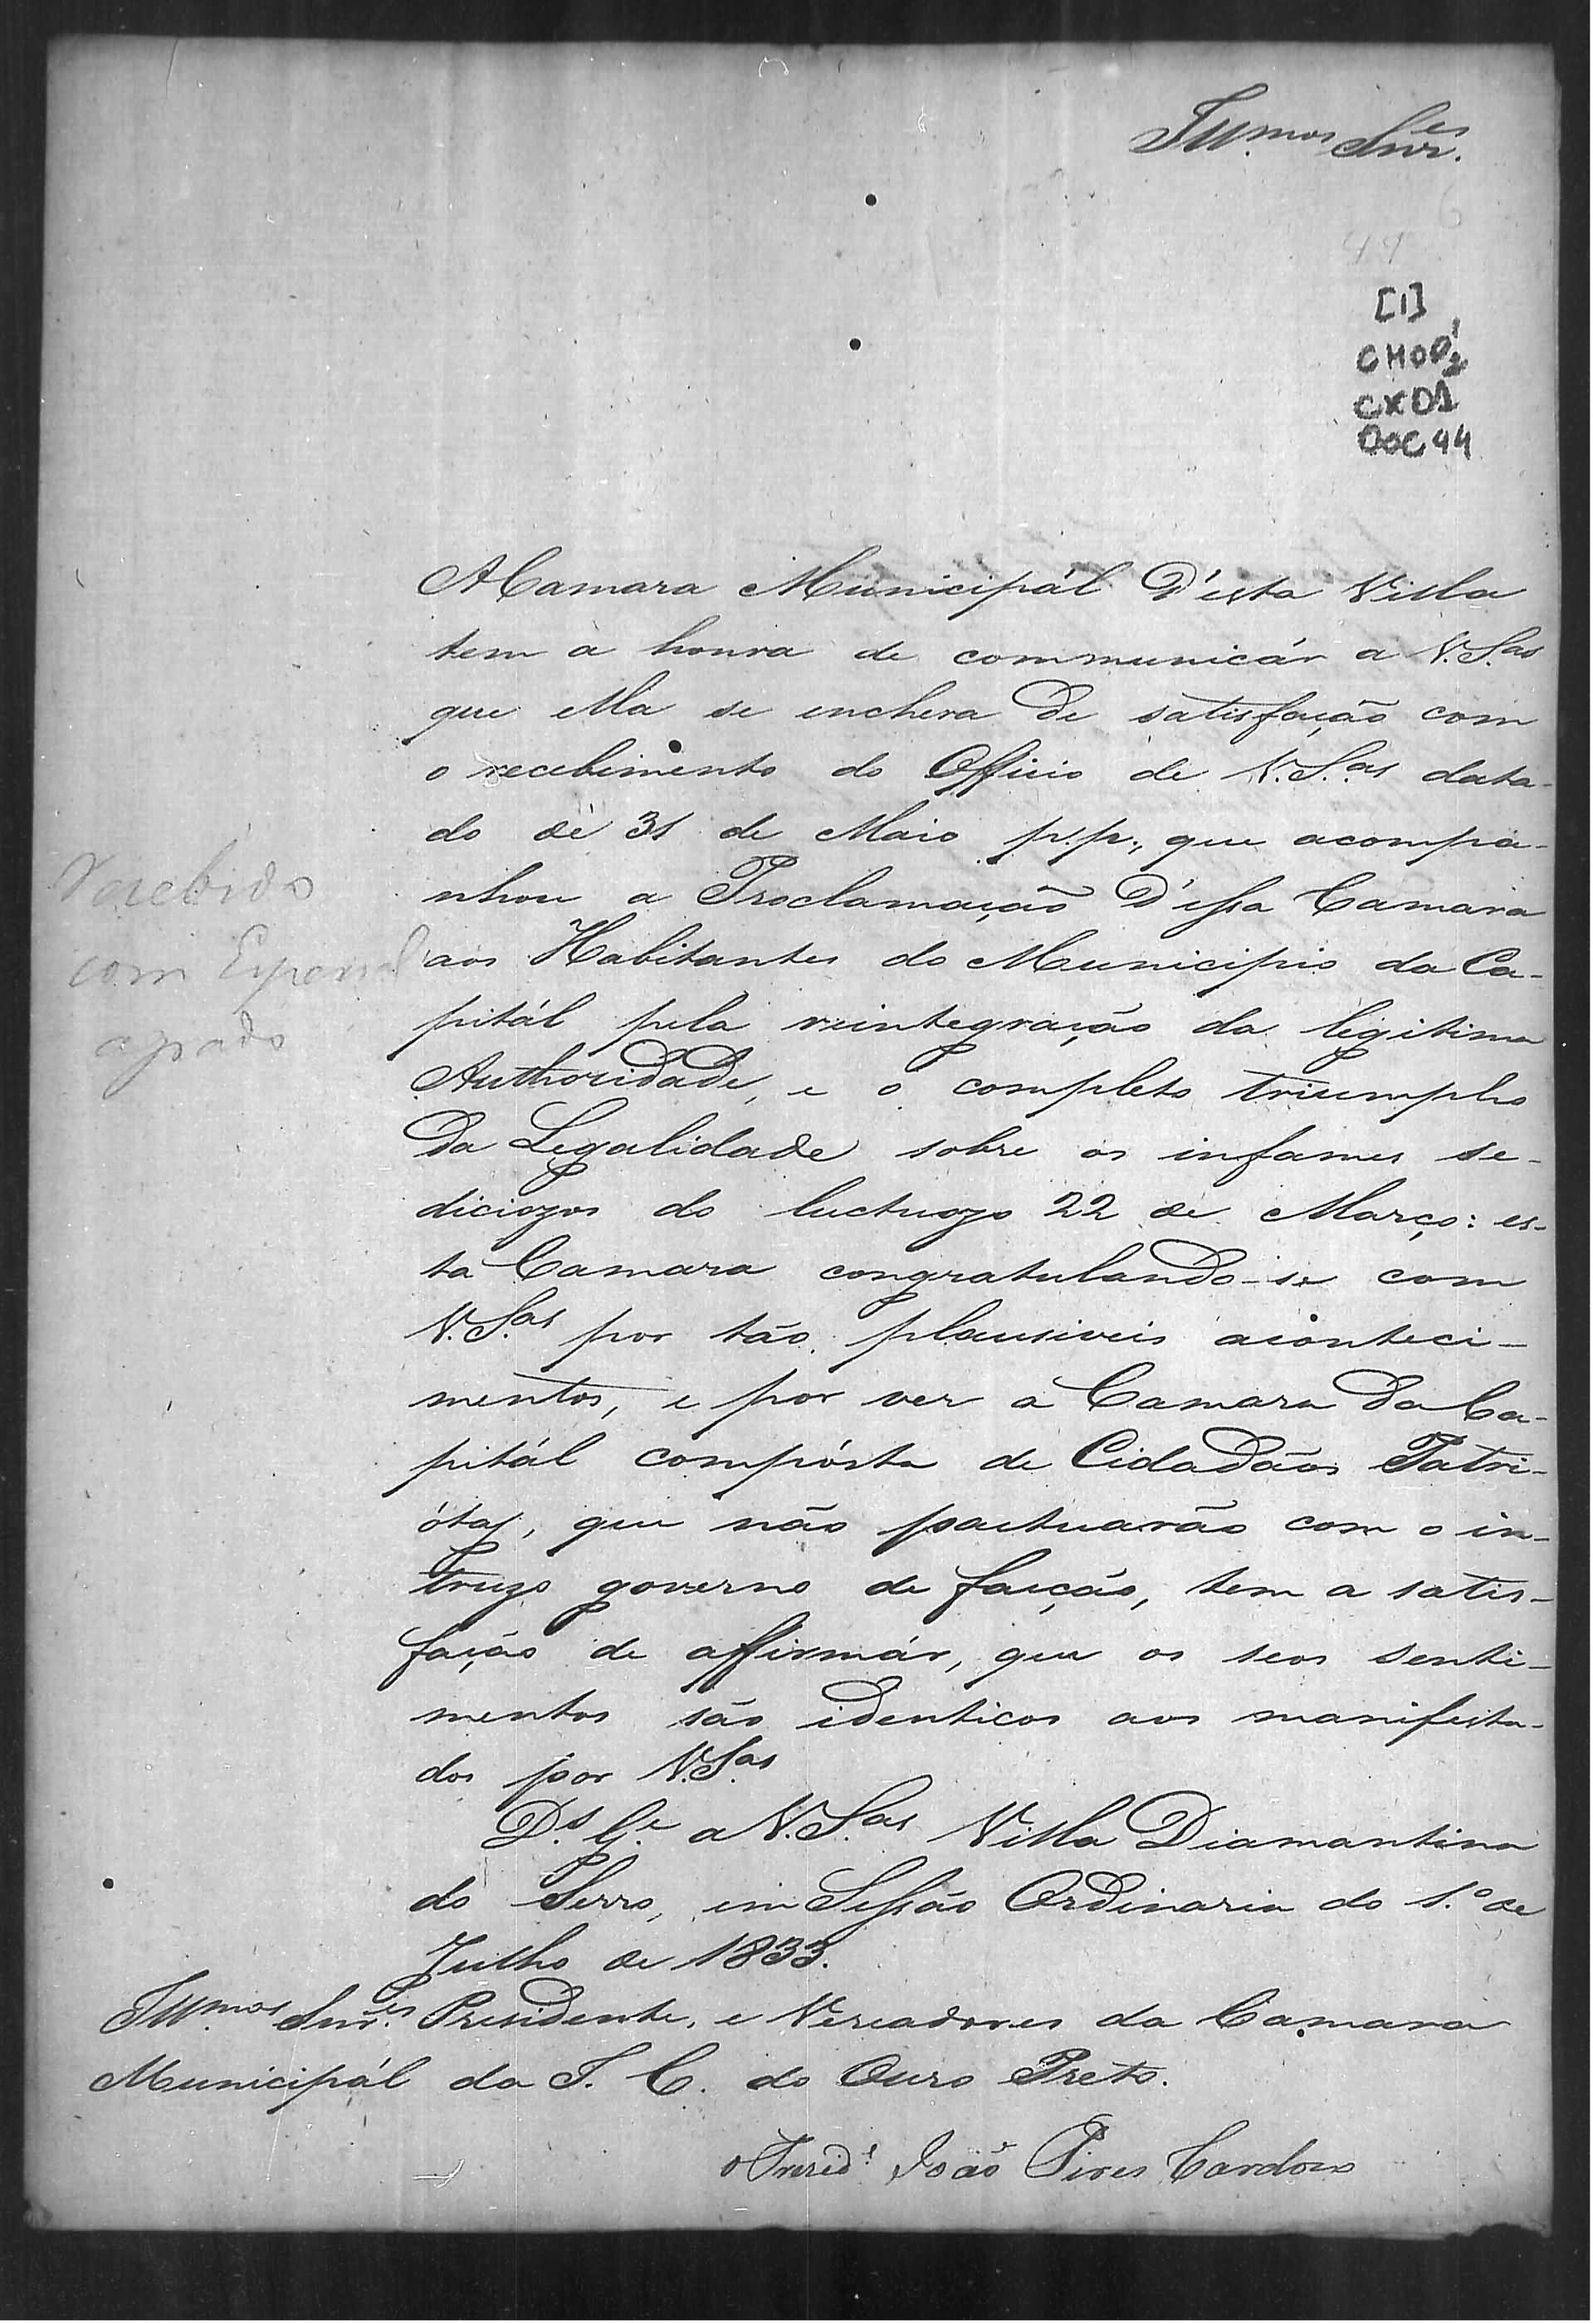 Ill.mos Snr.es
44
[1]
CMOP
CX01
DOC 44
A Camara Municipál d'esta Villa
tem a honra de communicár a V.S.as
que ella se enchera de satisfação com
o recebimento do Officio de V.S.as data-
do de 31 de Maio p.p., que acompa-
nhou a Proclamação d'essa Camara
aos Habitantes do Municipio da Ca-
pitál pela reintegração da legitima
Authoridade, e o completo triumpho
da Legalidade sobre os infames se-
diciozos do luctuozo 22 de Março: es-
ta Camara congratulando-se com
V.S.as por tão plausiveis aconteci-
mentos, e por ver a Camara da Ca-
pitál compósta de Cidadãos Patri-
ótas, que não pactuarão com o in-
truzo governo de facção, tem a satis-
fação de affirmár, que os seos senti-
mentos são identicos aos manifesta-
dos por V.S.as
D.s G.e a V.S.as Villa Diamantina
do Serro, em Sessão Ordinaria do 1.º de
Julho de 1833.
Ill.mos Snr.es Presidente, e Vereadores da Camara
Municipál da I. C. do Ouro Preto.
o Presid.e João Pires Cardoso
Recebido
com Especial
agrado